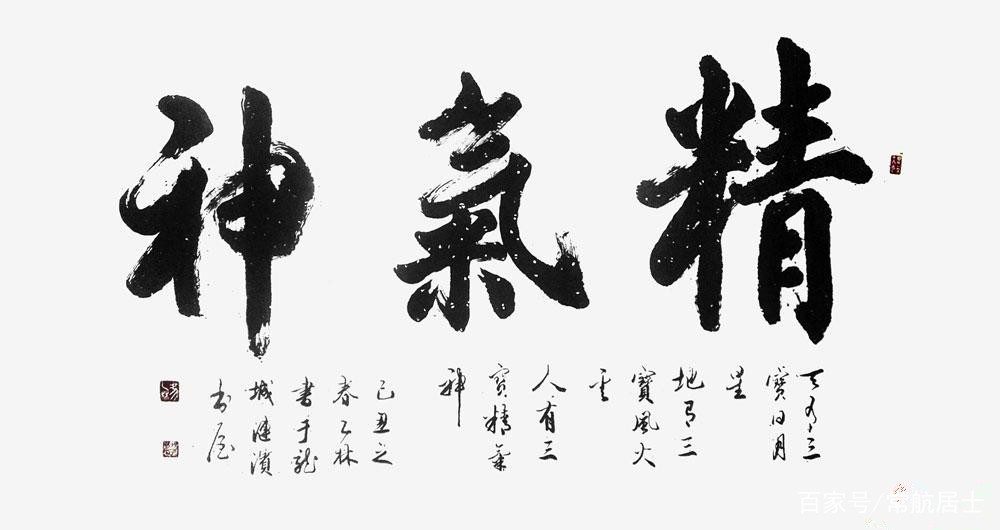 精氣神
天有三
寶日月
星
地有三
寶風火
人有三
寶精氣
神
己丑之
春林
書于龍
城漣
書屋
百家号/常航居士